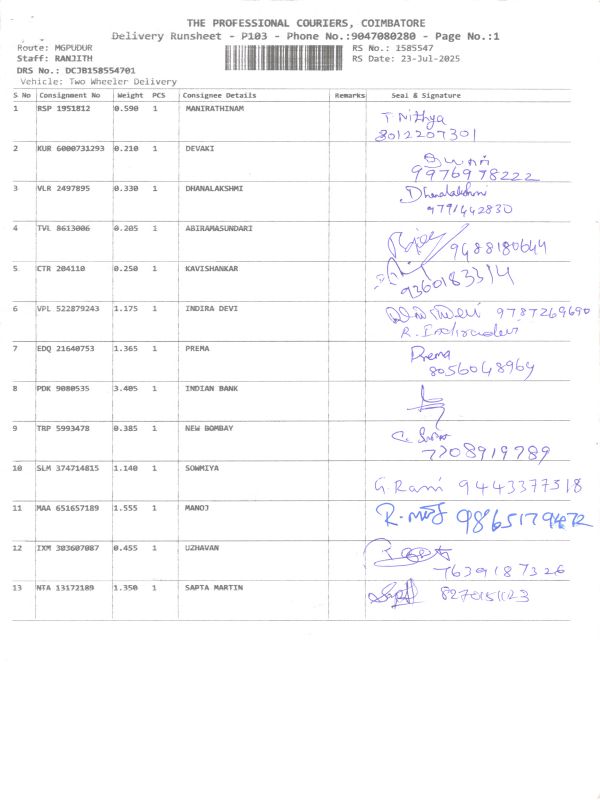 THE PROFESSIONAL COURIERS, COIMBATORE
Delivery Runsheet - P103 - Phone No.:9047080280 - Page No.:1
Route: MGPUDUR RS No.: 1585547
Staff: RANJITH RS Date: 23-Jul-2025
DRS No.: DCJB158554701
Vehicle: Two Wheeler Delivery
S No Consignment No Weight PCS Consignee Details Remarks Seal & Signature
1 RSP 1951812 0.590 1 MANIRATHINAM T Nithya
8012207301
2 KUR 6000731293 0.210 1 DEVAKI
9976978222
3 VLR 2497895 0.330 1 DHANALAKSHMI Dhanalakshmi
9791442830
4 TVL 8613006 0.205 1 ABIRAMASUNDARI 9488180644
5 CTR 204110 0.250 1 KAVISHANKAR 9360183314
6 VPL 522879243 1.175 1 INDIRA DEVI 9787269690
R. Indiradevi
7 EDQ 21640753 1.365 1 PREMA Prema
8056048964
8 PDK 9080535 3.405 1 INDIAN BANK
9 TRP 5993478 0.385 1 NEW BOMBAY
7708919789
10 SLM 374714815 1.140 1 SOWMIYA G. Rani 9443377518
11 MAA 651657189 1.555 1 MANOJ 9865179472
12 IXM 303607087 0.455 1 UZHAVAN
7639187326
13 NTA 13172189 1.350 1 SAPTA MARTIN 8270151123